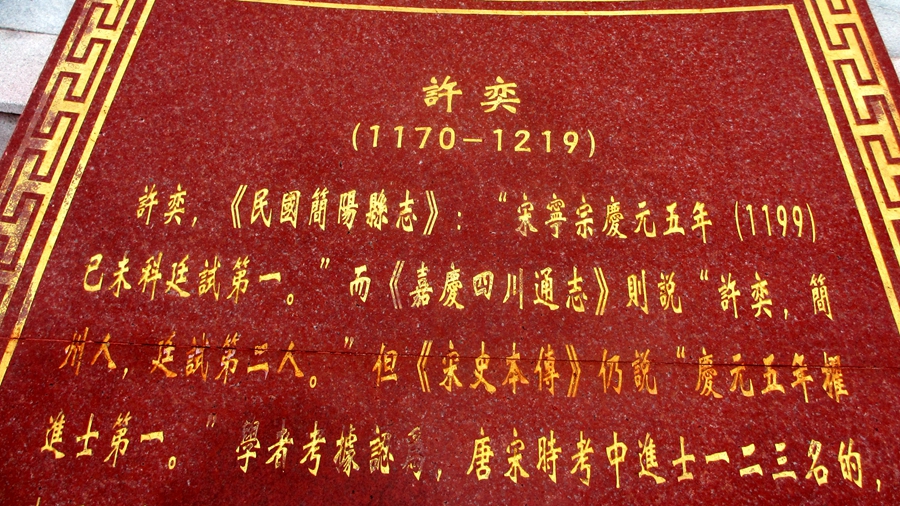 許奕
(1170－1219)
許奕，《民國簡陽縣志》：“宋寧宗慶元五年(1199)
己未科廷試第一。”而《嘉慶四川通志》則説“許奕，簡
州人，廷試第二人。”但《宋史本傳》仍説“慶元五年擢
進士第一。”學者考據認爲，唐宋時考中進士一二三名的，